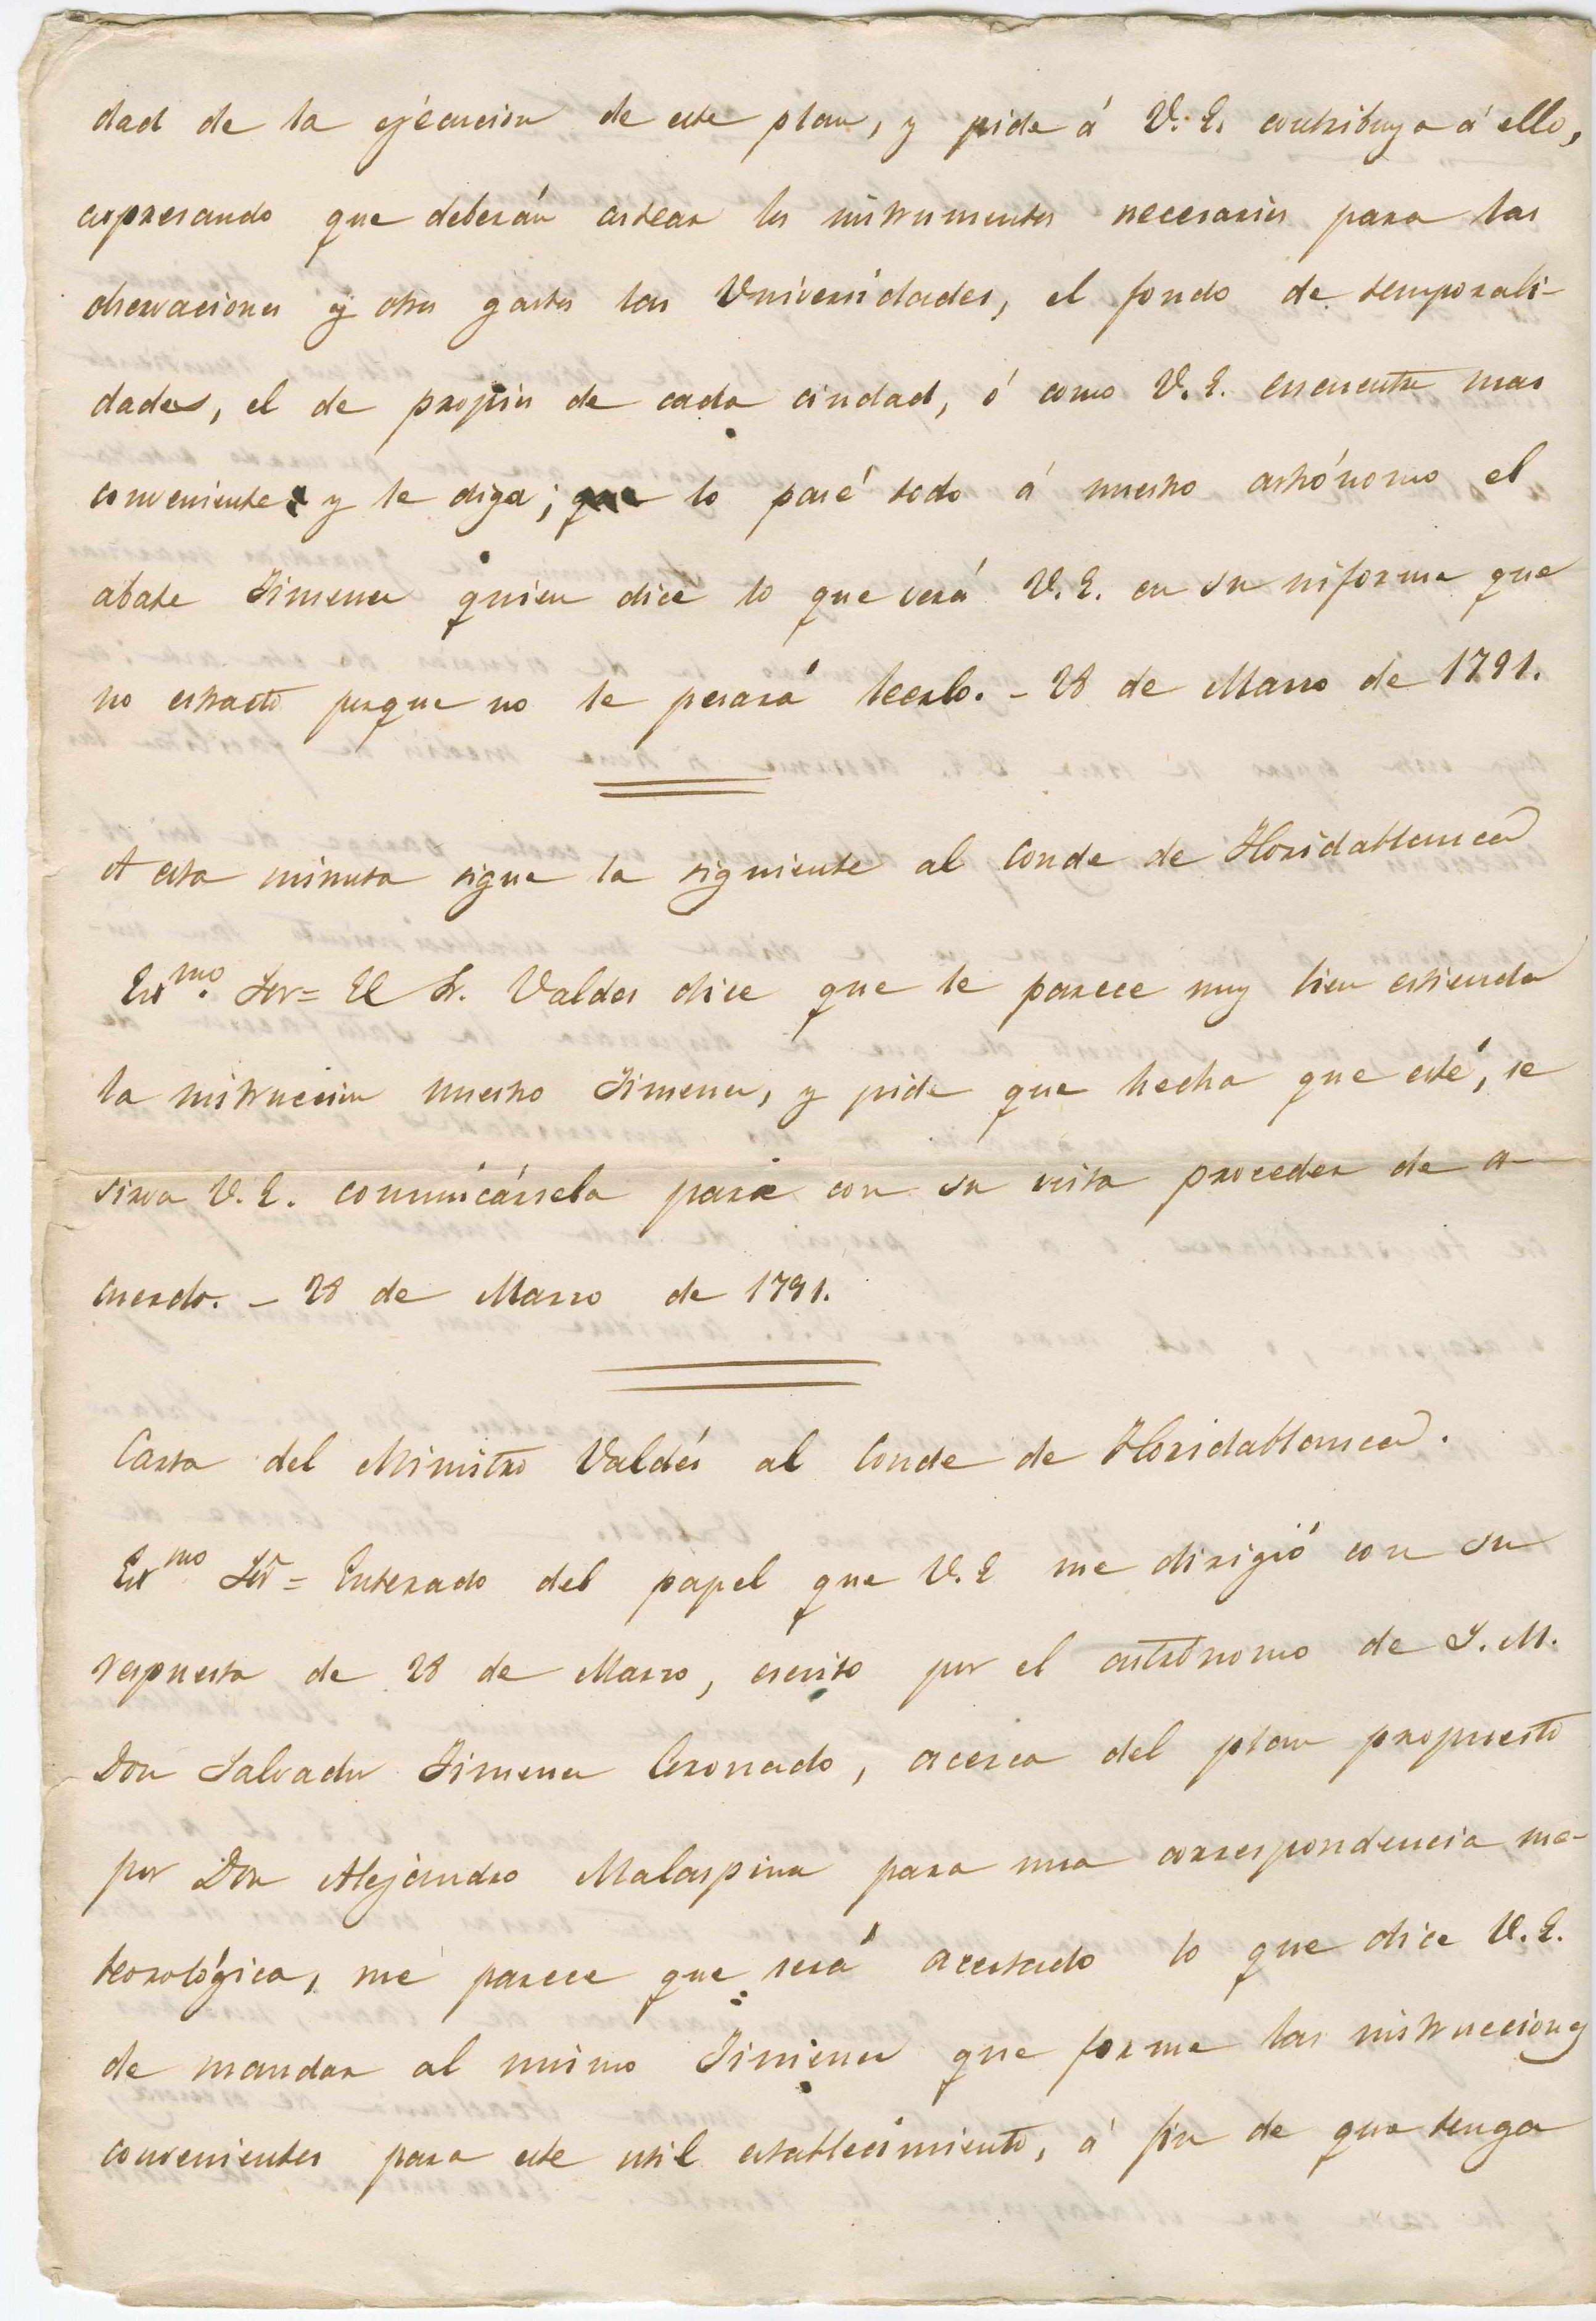 dad de la ejécucion de este plan, y pide á V. E. contribuya á ello,
expresando que deberán costear los instrumentos necesarios para las
observaciones y otros gastos las Universidades, el fondo de temporali-
dades, el de propios de cada ciudad, ó como V. E. encuentre mas
conveniente y le diga; que lo pasé todo á nuestro astrónomo el
abate Jimenez quien dice lo que verá V. E. en su informe que
no estracto porque no le pesará leerlo. - 28 de Marzo de 1791.
A esta minuta sigue la siguiente al Conde de Floridablanca
Exmo. Sor = El Sr. Valdes dice que le parece muy bien estienda
la instruccion nuestro Jimenez, y pide que hecha que esté, se
sirva V. E. comunicársela para con su vista proceder de a-
cuerdo. - 28 de Marzo de 1791.
Carta del Ministro Valdés al Conde de Floridablanca.
Exmo Sor = Enterado del papel que V. E me dirigió con su
respuesta de 28 de Marzo, escrito por el astrónomo de S. M.
Don Salvador Jimenez Coronado, acerca del plan propuesto
por Don Alejandro Malaspina para una correspondencia me-
teorológica, me parece que será acertado lo que dice V. E.
de mandar al mismo Jimenez que forme las instrucciones
convenientes para este util establecimiento, á fin de que tenga